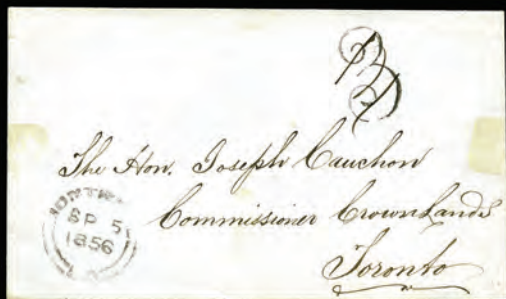 The Hon. Joseph Cauchon
Commissioner Crown Lands
Toronto
SP 5
1856